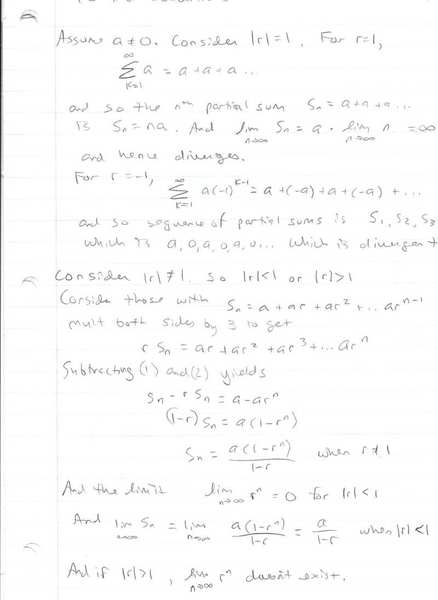 Assume a ≠ 0. Consider |r| = 1. For r=1,
∞
Σ a = a + a + a ...
K=1
and so the nth partial sum Sn = a + a + a ...
is Sn = na. And lim n→∞ Sn = a · lim n→∞ n = ∞
and hence diverges.
For r = -1,
∞
Σ a(-1)^(K-1) = a + (-a) + a + (-a) + ...
K=1
and so sequence of partial sums is S1, S2, S3
which is a, 0, a, 0, a, 0... which is divergent
Consider |r| ≠ 1. So |r|<1 or |r|>1
Consider those with Sn = a + ar + ar² + ... ar^(n-1)
mult both sides by 3 to get
r Sn = ar + ar² + ar³ + ... ar^n
Subtracting (1) and (2) yields
Sn - r Sn = a - ar^n
(1-r) Sn = a(1-r^n)
Sn = a(1-r^n)/(1-r) when r ≠ 1
And the limit lim n→∞ r^n = 0 for |r| < 1
And lim n→∞ Sn = lim n→∞ a(1-r^n)/(1-r) = a/(1-r) when |r| < 1
And if |r|>1, lim n→∞ r^n doesn't exist.